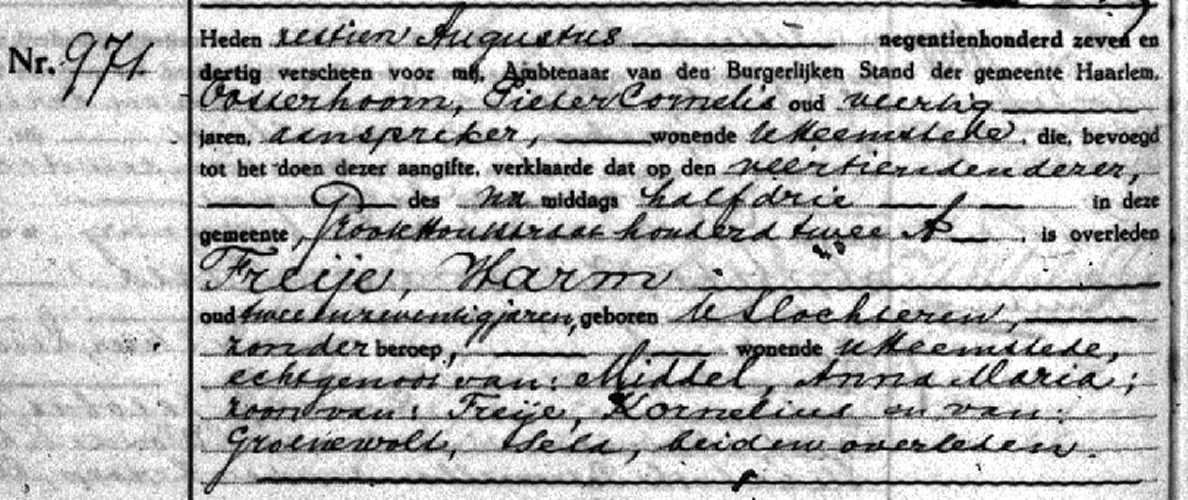 Nr. 971
Heden zestien Augustus negentienhonderd zeven en
dertig verscheen voor mij, Ambtenaar van den Burgerlijken Stand der gemeente Haarlem,
Oosterhoorn, Pieter Cornelis oud veertig
jaren, aanspreker, wonende te Heemstede, die, bevoegd
tot het doen dezer aangifte, verklaarde dat op den veertienden dezer,
des na middags half drie in deze
gemeente, Groote Houtstraat honderd twee A, is overleden
Freije, Harm
oud twee en zeventig jaren, geboren te Slochteren,
zonder beroep, wonende te Heemstede,
echtgenoot van: Middel, Anna Maria;
zoon van: Freije, Kornelius en van:
Groenewolt, beiden overleden.